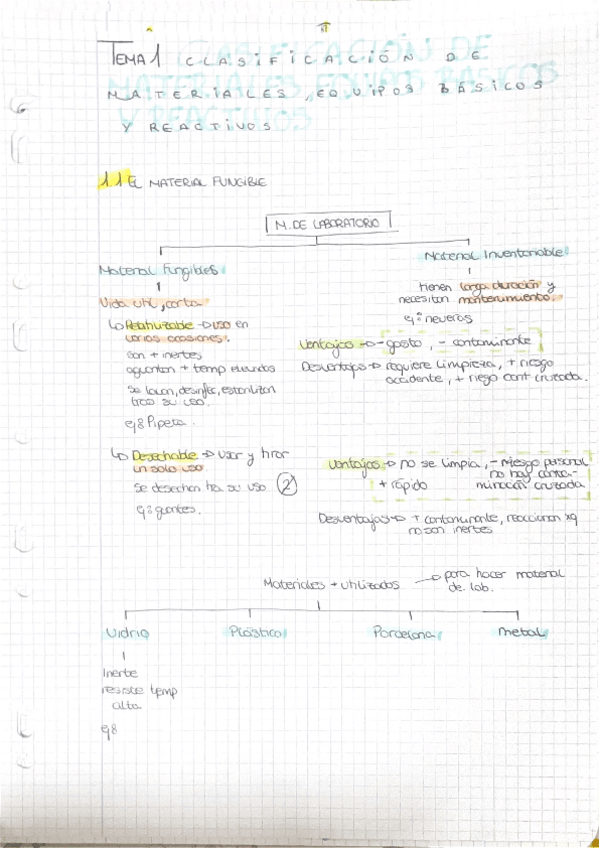 TEMA 1 CLASIFICACIÓN DE
MATERIALES, EQUIPOS BÁSICOS
Y REACTIVOS
1.1 EL MATERIAL FUNGIBLE
M. DE LABORATORIO
Material Fungibles
Material Inventariable
Vida util, corta
tienen larga duración y
necesitan mantenimiento.
ej: neveras
↳ Reutilizable → uso en
varios ocasiones.
son + inertes
aguantan + temp elevandas
se lavan, desinfec, esterilizan
tras su uso.
ej: Pipeta.
Ventajas → - gasto, - contaminante
Desventajas → requiere limpieza, + riesgo
accidente, + riego cont cruzada.
↳ Desechable → usar y tirar
un solo uso
se desechan tra su uso ②
ej: guantes.
Ventajas → no se limpia, - riesgo personal
no hay conta-
+ rápido minación cruzada
Desventajas → + contaminante, reaccionan xq
no son inertes
Materiales + utilizados → para hacer material
de lab.
Vidrio Plástico Porcelana metal
Inerte
resiste temp
alta
ej: